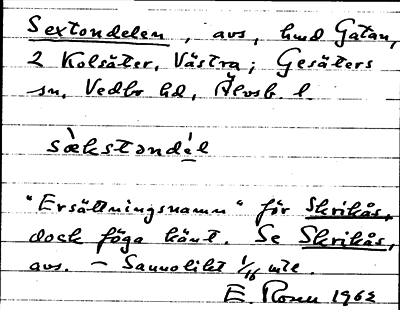 Sextondelen, avs, hmd Gatan,
2 Kolsäter, Västra; Gesäters
sn, Vedbo hd, Älvsb. l.
sæ̀kstondé̠l
"Ersättningsnamn" för Skrikås,
dock föga känt. Se Skrikås,
avs. – Sannolikt 1/16 mtl.
E. Rosen 1962